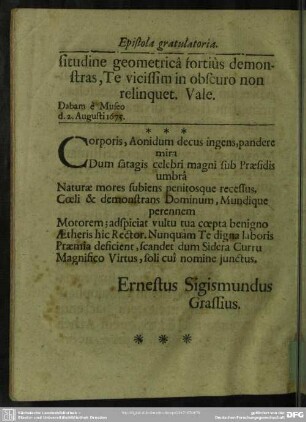 Epistola gratulatoria.
situdine geometricâ fortiùs demon-
stras, Te vicissim in obscuro non
relinquet. Vale.
Dabam è Museo
d. 2. Augusti 1675.
* * *
Corporis, Aonidum decus ingens, pandere
mira
Dum satagis celebri magni sub Præsidis
umbrâ
Naturæ mores subiens penitosque recessus,
Cœli & demonstrans Dominum, Mundique
perennem
Motorem; adspiciat vultu tua cœpta benigno
Ætheris hic Rector. Nunquam Te digna laboris
Præmia deficient, scandet dum Sidera Curru
Magnifico Virtus, soli cui nomine junctus.
Ernestus Sigismundus
Grassius.
* * *
DFG